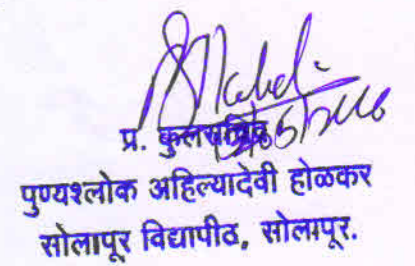 प्र. कुलसचिव
पुण्यश्लोक अहिल्यादेवी होळकर
सोलापूर विद्यापीठ, सोलापूर.